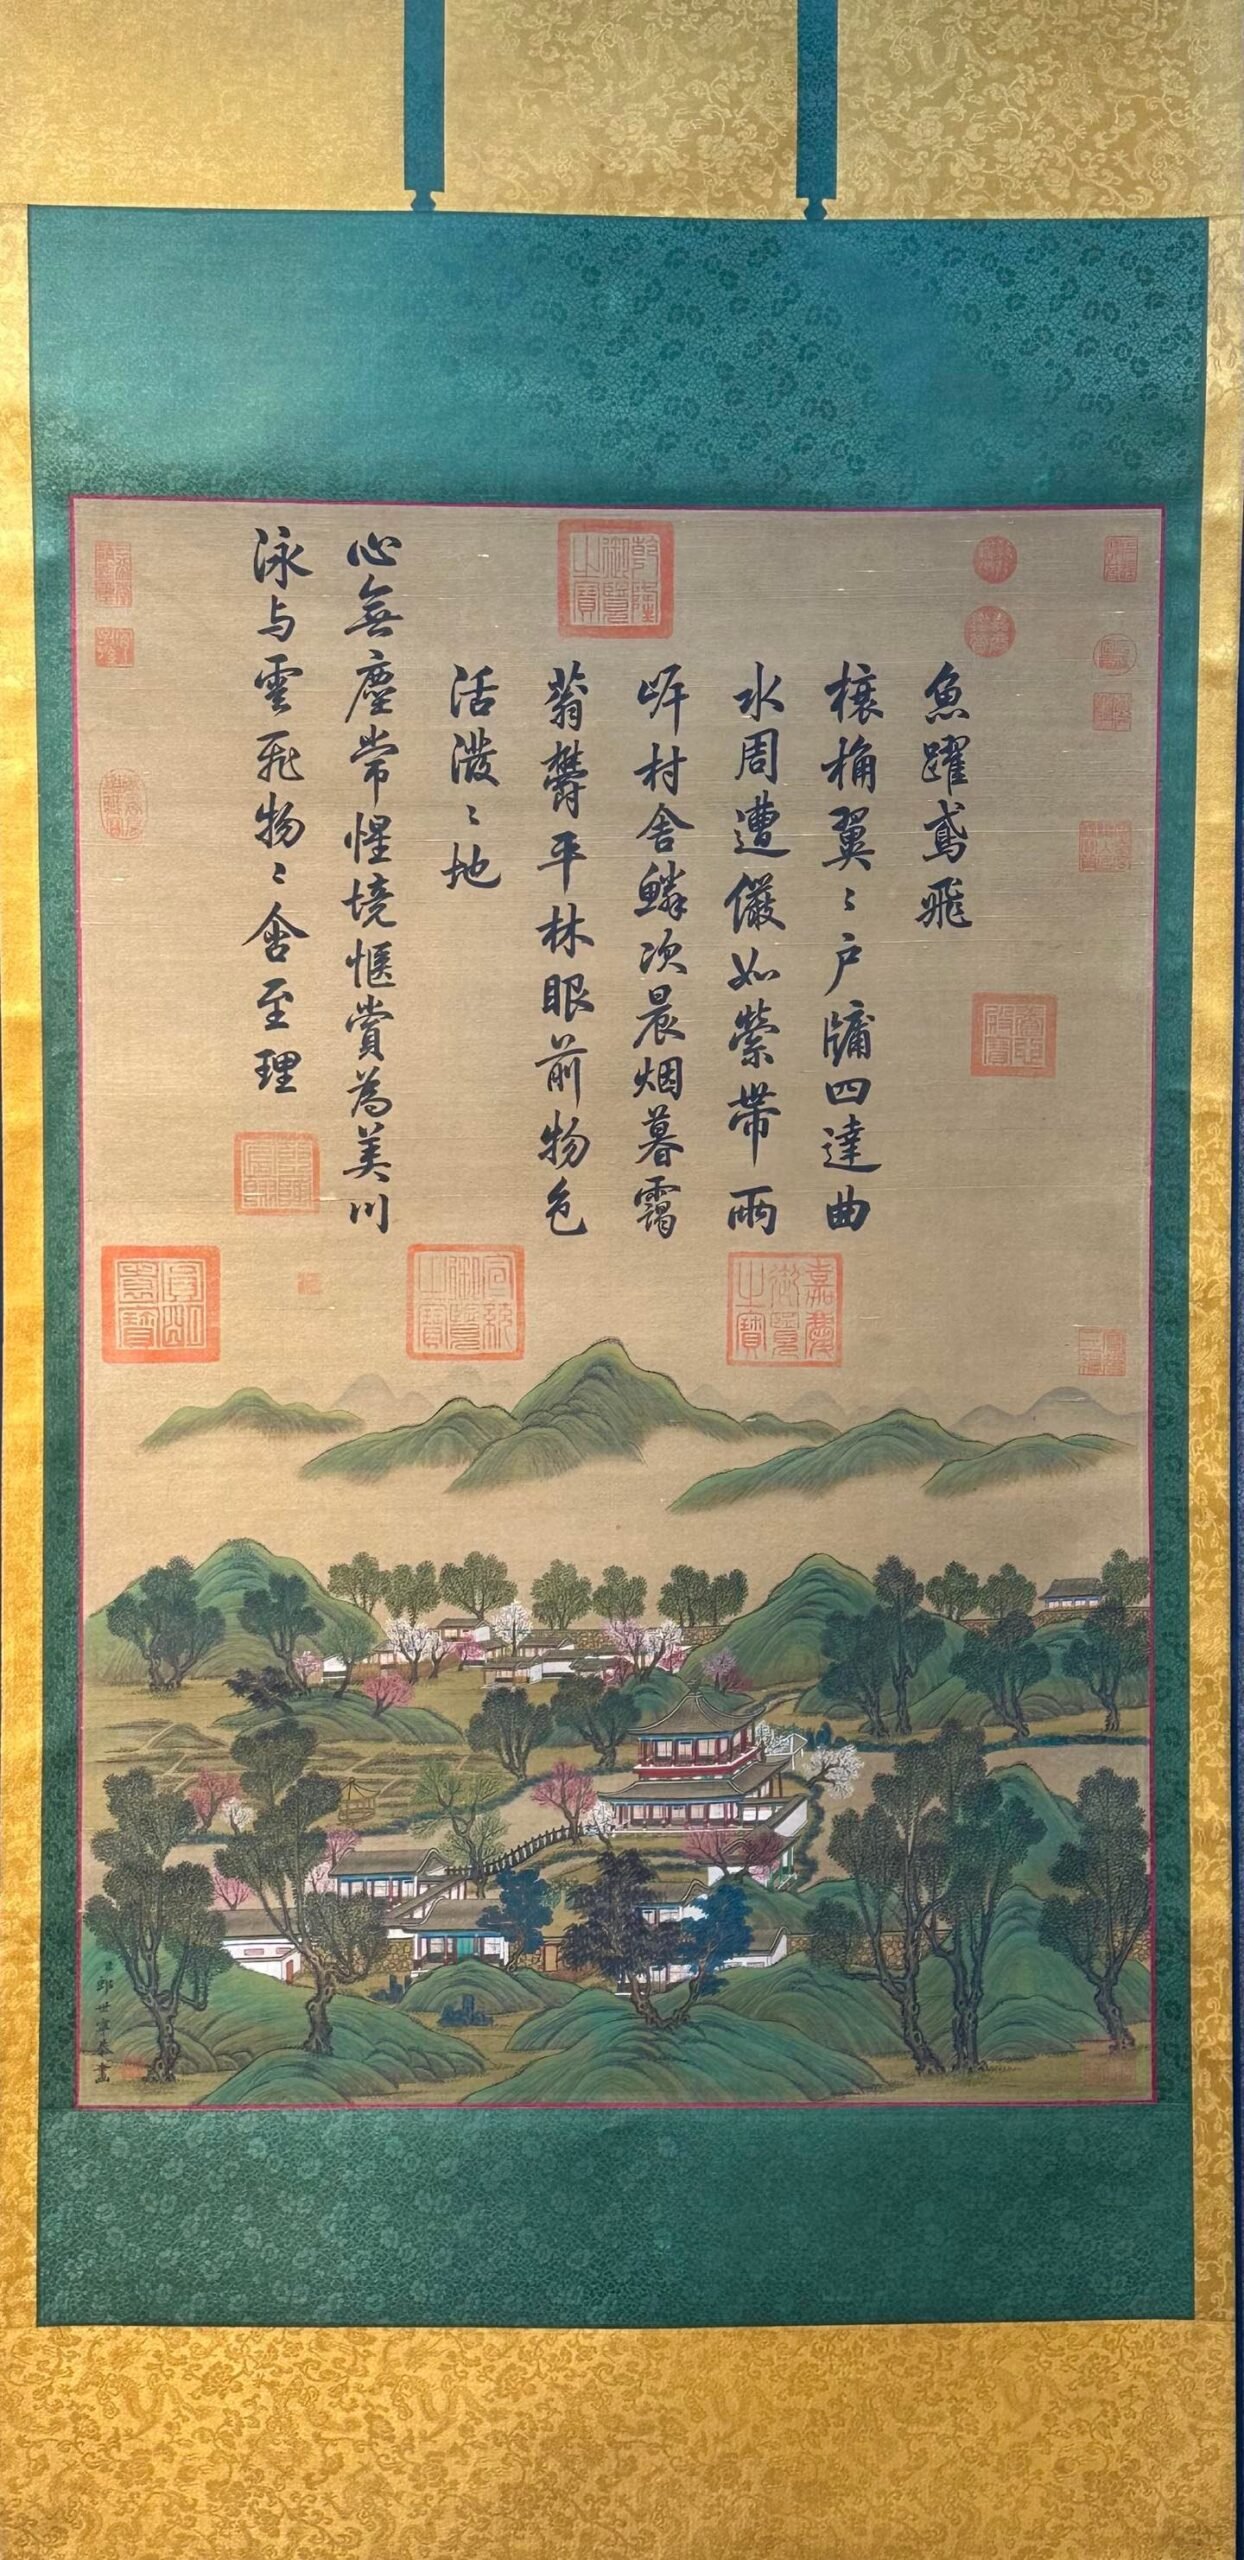 魚躍鳶飛
榱桷翼〻户牖四達曲
水周遭儼如縈帶兩
岸村舍鱗次晨烟暮靄
蓊欝平林眼前物色
活潑〻地
心無塵常惺境愜賞為美川
泳与雲飛物〻含至理
乾隆御覽之寶
嘉慶御覽之寶
宣統御覽之寶
臣郎世寧恭畫